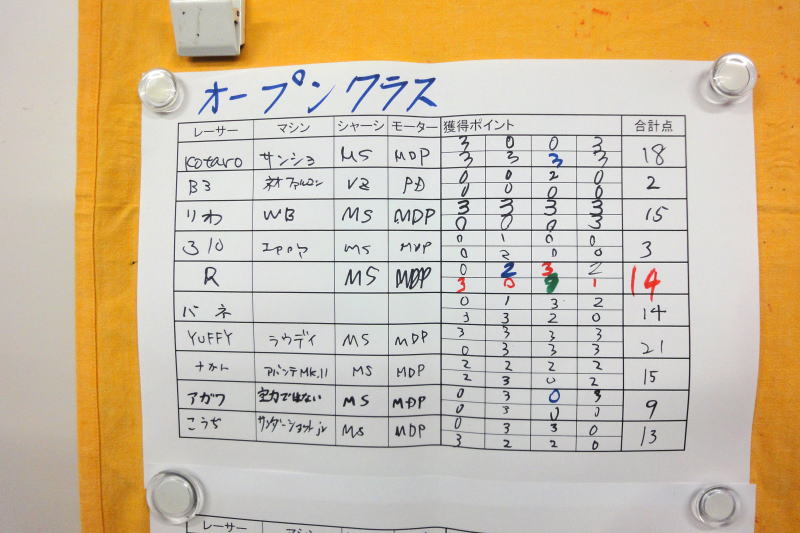 オープンクラス
レーサー マシン シャーシ モーター 獲得ポイント 合計点
3 0 0 3
Kotaro サンショ MS MDP 18
3 3 3 3
0 0 2 0
B3 ネオファルコン VZ PD 2
0 0 0 0
3 3 3 3
りわ WB MS MDP 15
0 0 0 3
0 1 0 0
310 MS MDP 3
0 2 0 0
0 2 3 2
R MS MDP 14
3 0 1
0 1 3 2
バネ 14
3 3 2 0
3 3 3 3
YUFFY ラウディ MS MDP 21
0 3 3 3
2 2 2 2
アバンテMk.II MS MDP 15
2 3 0 2
0 3 0 3
アガワ 実力ではない MS MDP 9
0 3 0 0
0 3 3 0
こうぢ サンダーショットjr MS MDP 13
3 2 2 0
レーサー マシン